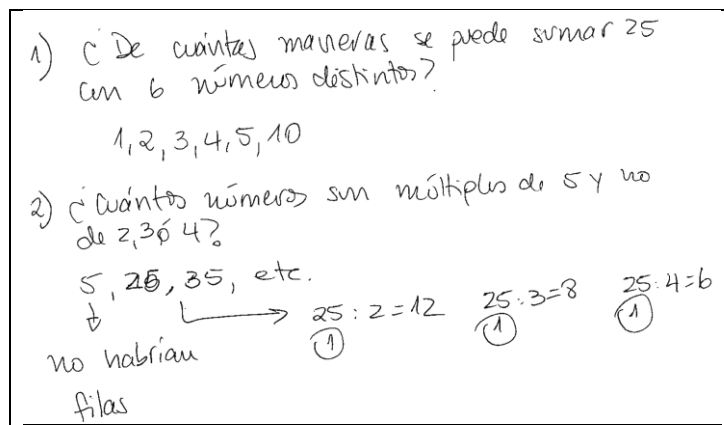 1) ¿De cuántas maneras se puede sumar 25
con 6 números distintos?
1, 2, 3, 4, 5, 10
2) ¿Cuántos números son múltiplos de 5 y no
de 2, 3 ó 4?
5, 25, 35, etc.
25 : 2 = 12 25 : 3 = 8 25 : 4 = 6
1 1 1
no habrían
filas